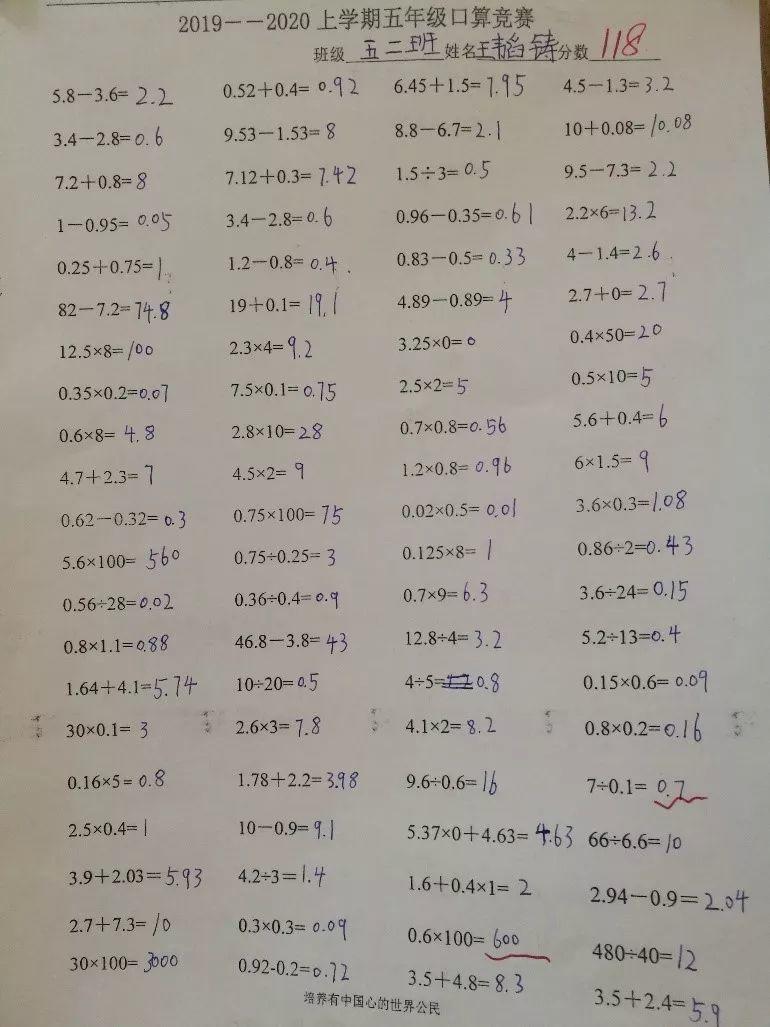 2019——2020 上学期五年级口算竞赛
班级 五二班 姓名 王韬铸 分数 118
5.8－3.6= 2.2 0.52＋0.4= 0.92 6.45＋1.5= 7.95 4.5－1.3= 3.2
3.4－2.8= 0.6 9.53－1.53= 8 8.8－6.7= 2.1 10＋0.08= 10.08
7.2＋0.8= 8 7.12＋0.3= 7.42 1.5÷3= 0.5 9.5－7.3= 2.2
1－0.95= 0.05 3.4－2.8= 0.6 0.96－0.35= 0.61 2.2×6= 13.2
0.25＋0.75= 1 1.2－0.8= 0.4 0.83－0.5= 0.33 4－1.4= 2.6
82－7.2= 74.8 19＋0.1= 19.1 4.89－0.89= 4 2.7＋0= 2.7
12.5×8= 100 2.3×4= 9.2 3.25×0= 0 0.4×50= 20
0.35×0.2= 0.07 7.5×0.1= 0.75 2.5×2= 5 0.5×10= 5
0.6×8= 4.8 2.8×10= 28 0.7×0.8= 0.56 5.6＋0.4= 6
4.7＋2.3= 7 4.5×2= 9 1.2×0.8= 0.96 6×1.5= 9
0.62－0.32= 0.3 0.75×100= 75 0.02×0.5= 0.01 3.6×0.3= 1.08
5.6×100= 560 0.75÷0.25= 3 0.125×8= 1 0.86÷2= 0.43
0.56÷28= 0.02 0.36÷0.4= 0.9 0.7×9= 6.3 3.6÷24= 0.15
0.8×1.1= 0.88 46.8－3.8= 43 12.8÷4= 3.2 5.2÷13= 0.4
1.64＋4.1= 5.74 10÷20= 0.5 4÷5= 0.8 0.15×0.6= 0.09
30×0.1= 3 2.6×3= 7.8 4.1×2= 8.2 0.8×0.2= 0.16
0.16×5= 0.8 1.78＋2.2= 3.98 9.6÷0.6= 16 7÷0.1= 0.7
2.5×0.4= 1 10－0.9= 9.1 5.37×0＋4.63= 4.63 66÷6.6= 10
3.9＋2.03= 5.93 4.2÷3= 1.4 1.6＋0.4×1= 2 2.94－0.9= 2.04
2.7＋7.3= 10 0.3×0.3= 0.09 0.6×100= 600 480÷40= 12
30×100= 3000 0.92-0.2= 0.72 3.5＋4.8= 8.3 3.5＋2.4= 5.9
培养有中国心的世界公民